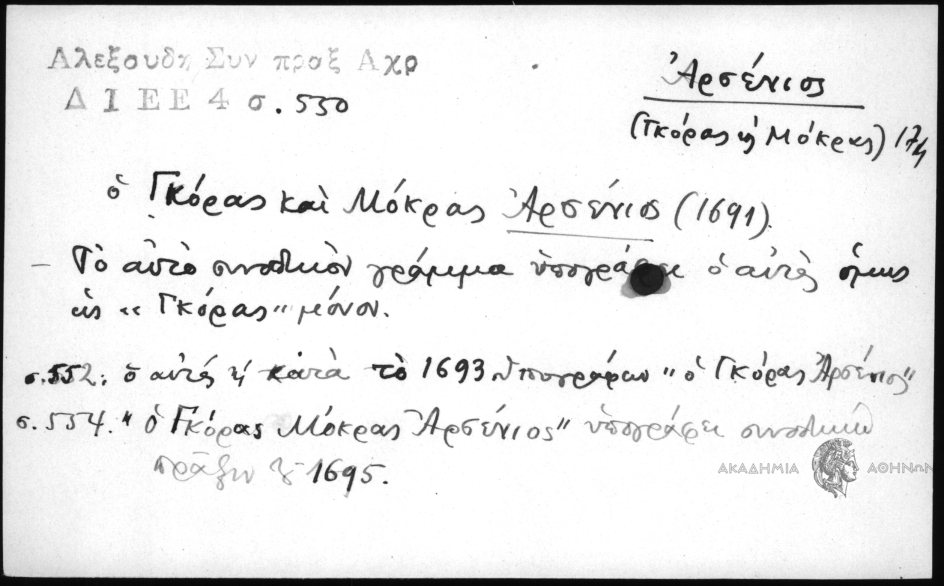 Αλεξουδη Συν πραξ Αχρ
Δ Ι Ε Ε 4 σ. 550
Ἀρσένιος
(Γκόρας ἢ Μόκρας) 174
ὁ Γκόρας καὶ Μόκρας Ἀρσένιος (1691).
– Τὸ αὐτὸ συνοδικὸν γράμμα ὑπογράφει ὁ αὐτὸς ὅμως
ὡς «Γκόρας" μόνον.
σ.552: ὁ αὐτὸς κατὰ τὸ 1693 ὑπογράφων "ὁ Γκόρας Ἀρσένιος"
σ.554. "ὁ Γκόρας Μόκρας Ἀρσένιος" ὑπογράφει συνοδικὴν
πρᾶξιν 1695.
ΑΚΑΔΗΜΙΑ ΑΘΗΝΩΝ